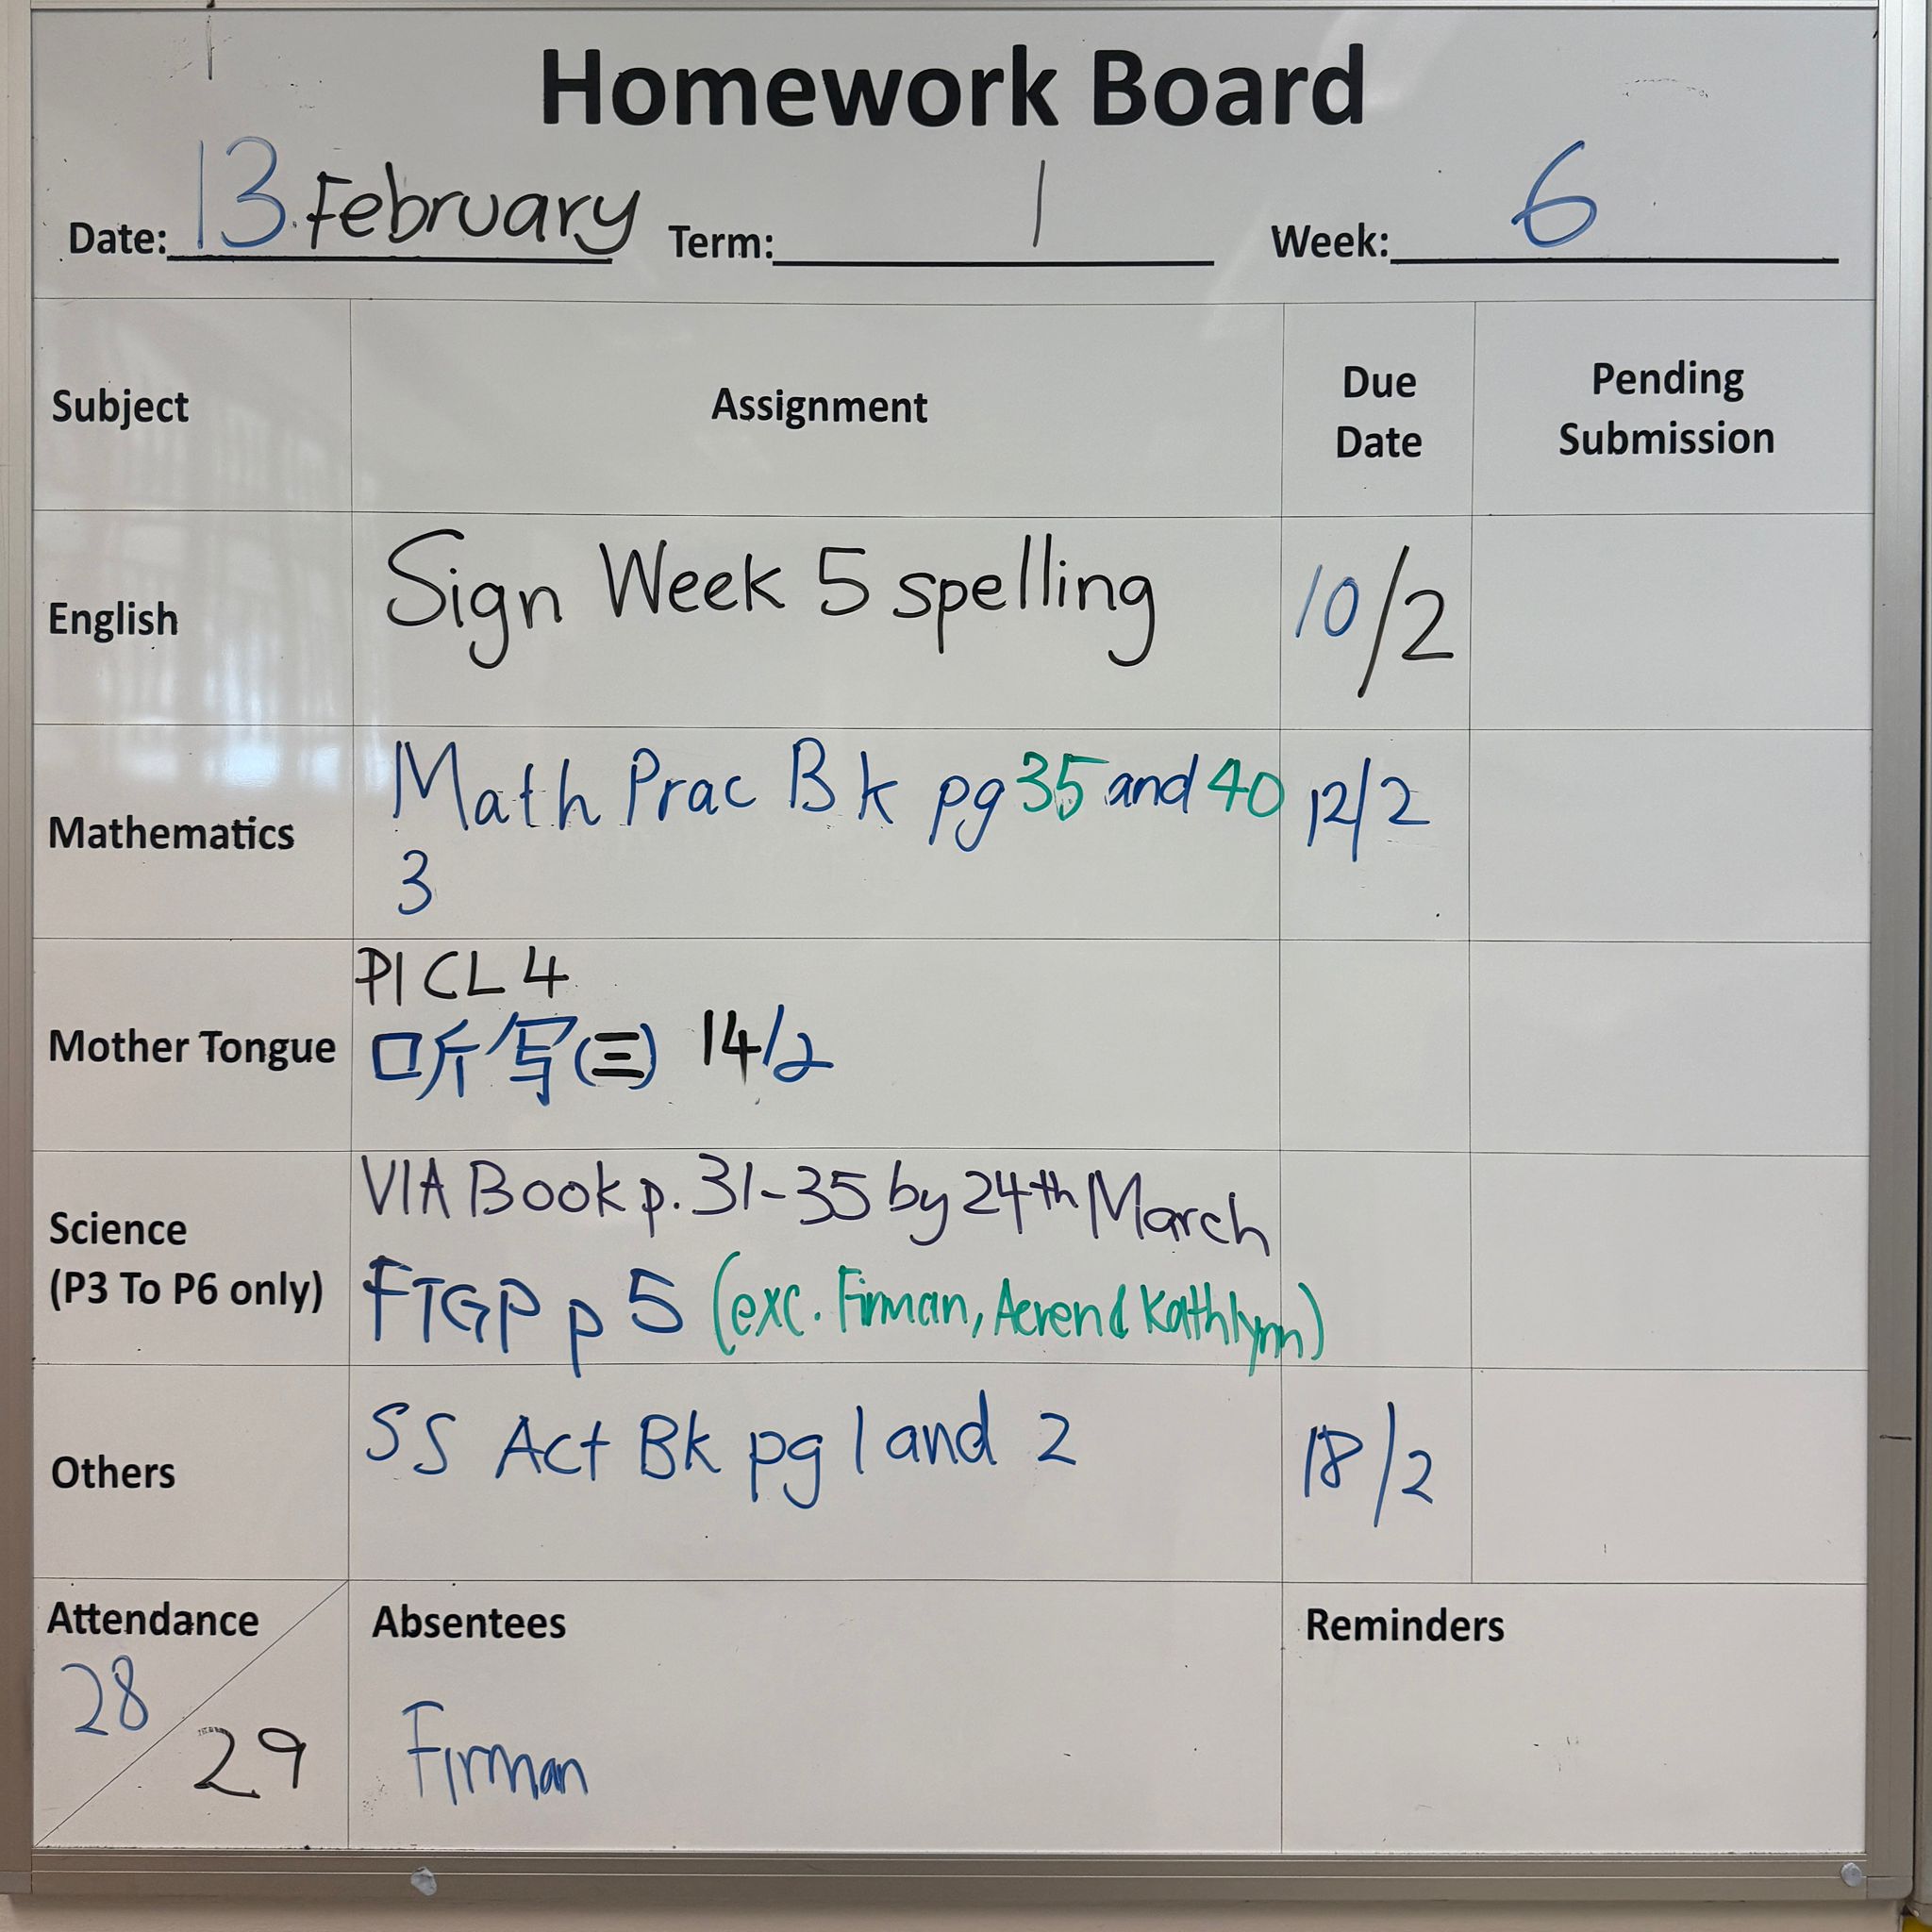 Homework Board
Date: 13. February Term: 1 Week: 6
Subject Assignment Due Date Pending Submission
English Sign Week 5 spelling 10/2
Mathematics Math Prac Bk pg 35 and 40 12/2
3
Mother Tongue PICL 4
听写(三) 14/2
Science (P3 To P6 only) VIA Book p. 31-35 by 24th March
FTGP p 5 (exc. Firman, Aeren d Kathlynn)
Others SS Act Bk pg 1 and 2 18/2
Attendance Absentees Reminders
28
29 Firman